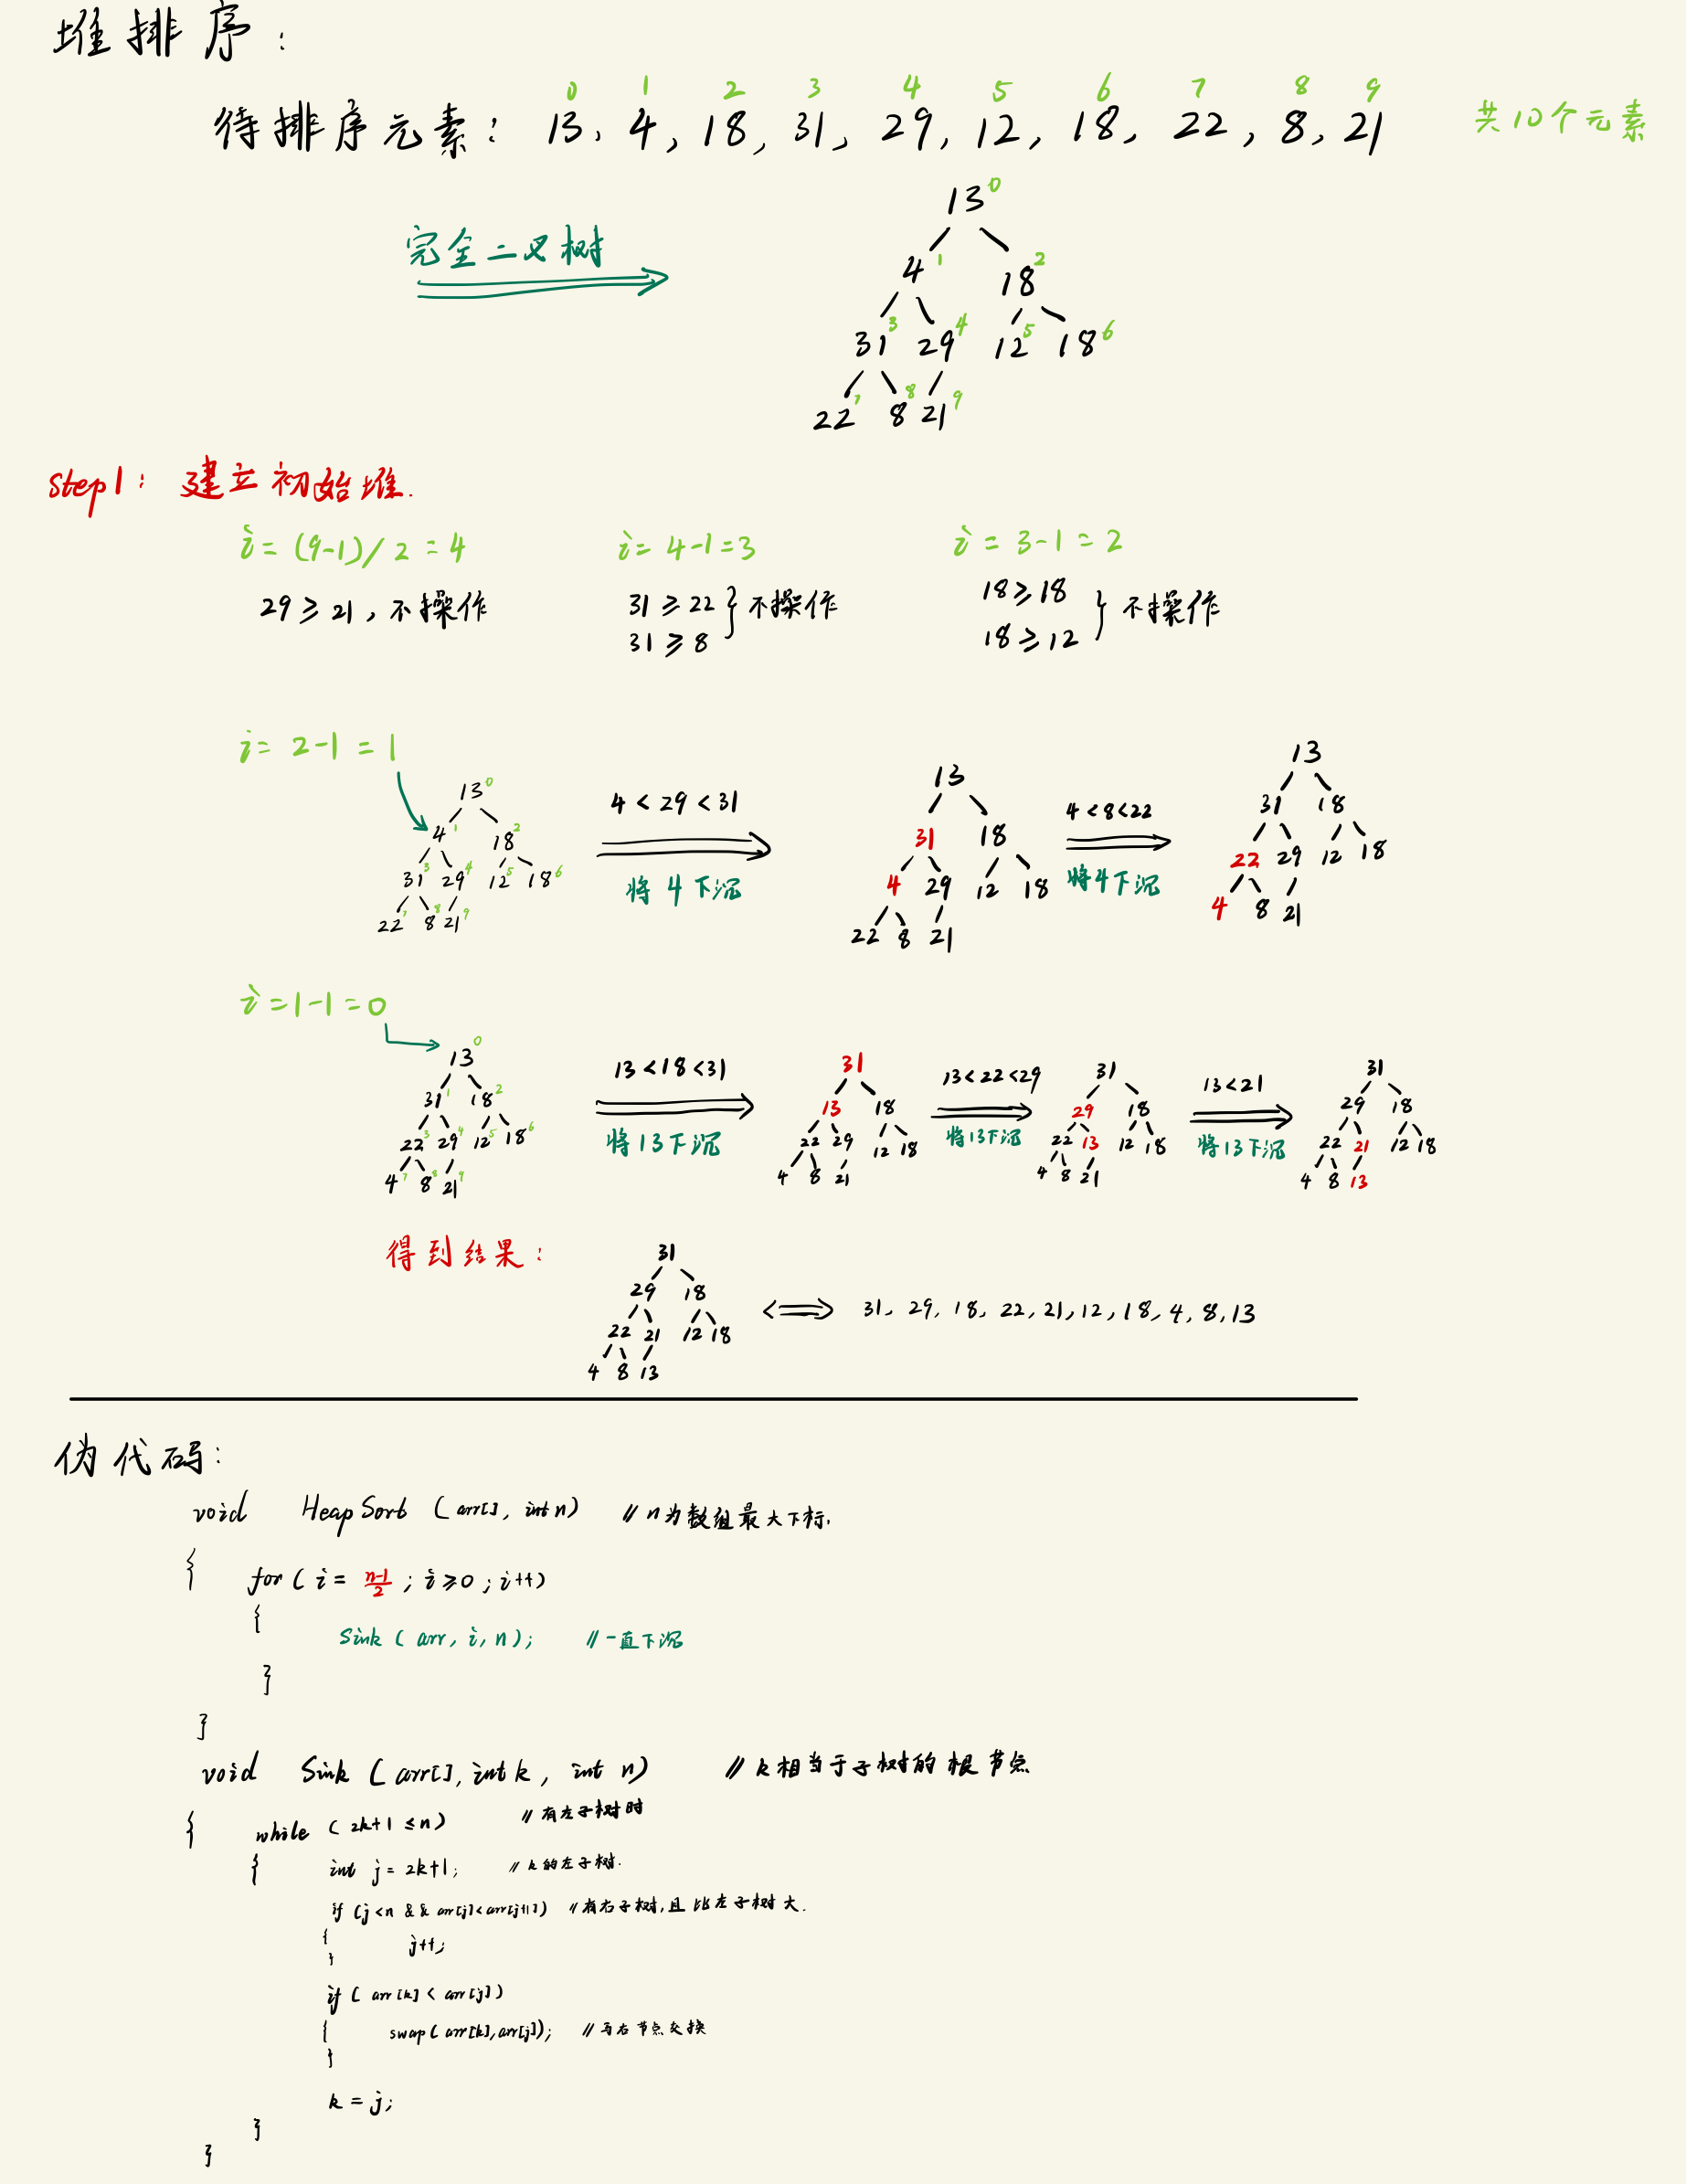 堆排序：
0 1 2 3 4 5 6 7 8 9
待排序元素：13, 4, 18, 31, 29, 12, 18, 22, 8, 21 共10个元素
13 0
完全二叉树
4 1 18 2
31 3 29 4 12 5 18 6
22 7 8 8 21 9
Step1：建立初始堆.
i = (9-1)/2 = 4 i = 4-1=3 i = 3-1 = 2
29 ≥ 21, 不操作
31 ≥ 22 } 不操作
31 ≥ 8
18 ≥ 18 } 不操作
18 ≥ 12
i = 2-1 = 1
13 0
4 1 18 2
31 3 29 4 12 5 18 6
22 7 8 8 21 9
4 < 29 < 31
将4下沉
13
31 18
4 29 12 18
22 8 21
4 < 8 < 22
将4下沉
13
31 18
22 29 12 18
4 8 21
i = 1-1 = 0
13 0
31 1 18 2
22 3 29 4 12 5 18 6
4 7 8 8 21 9
13 < 18 < 31
将13下沉
31
13 18
22 29 12 18
4 8 21
13 < 22 < 29
将13下沉
31
29 18
22 13 12 18
4 8 21
13 < 21
将13下沉
31
29 18
22 21 12 18
4 8 13
得到结果：
31
29 18
22 21 12 18
4 8 13
⟺ 31, 29, 18, 22, 21, 12, 18, 4, 8, 13
伪代码：
void HeapSort (arr[], int n) // n为数组最大下标,
{
for ( i = (n-1)/2 ; i ≥ 0 ; i++)
{
Sink ( arr, i, n ); // 一直下沉
}
}
void Sink ( arr[], int k, int n) // k相当于子树的根节点
{
while ( 2k+1 ≤ n) // 有左子树时
{
int j = 2k+1; // k的左子树.
if (j<n && arr[j]<arr[j+1]) // 有右子树,且比左子树大.
{
j++;
}
if ( arr[k] < arr[j])
{
swap( arr[k], arr[j]); // 与右节点交换
}
k = j;
}
}